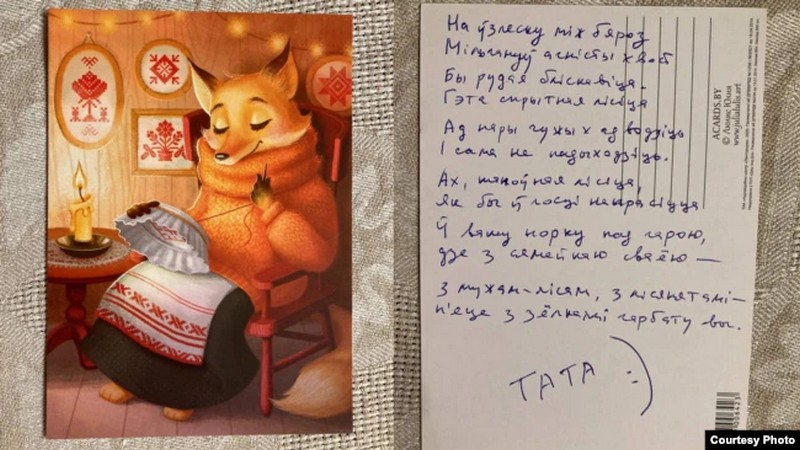 На ўзлеску між бяроз
Мільгануў агністы хвост
Бы рудая бліскавіца.
Гэта скрытная лісіца
Ад нары чужых адводзіць
І сама не падыходзіць.
Ах, шаноўная лісіца,
Як бы ў госці напрасіцца
Ў вашу норку пад гарою,
дзе з сямейкаю сваёю —
З мужам-лісам, з лісянятамі–
п'еце з зёлкамі гарбату вы.
ТАТА :)
ACARDS.BY
www.julialulia.art
Courtesy Photo